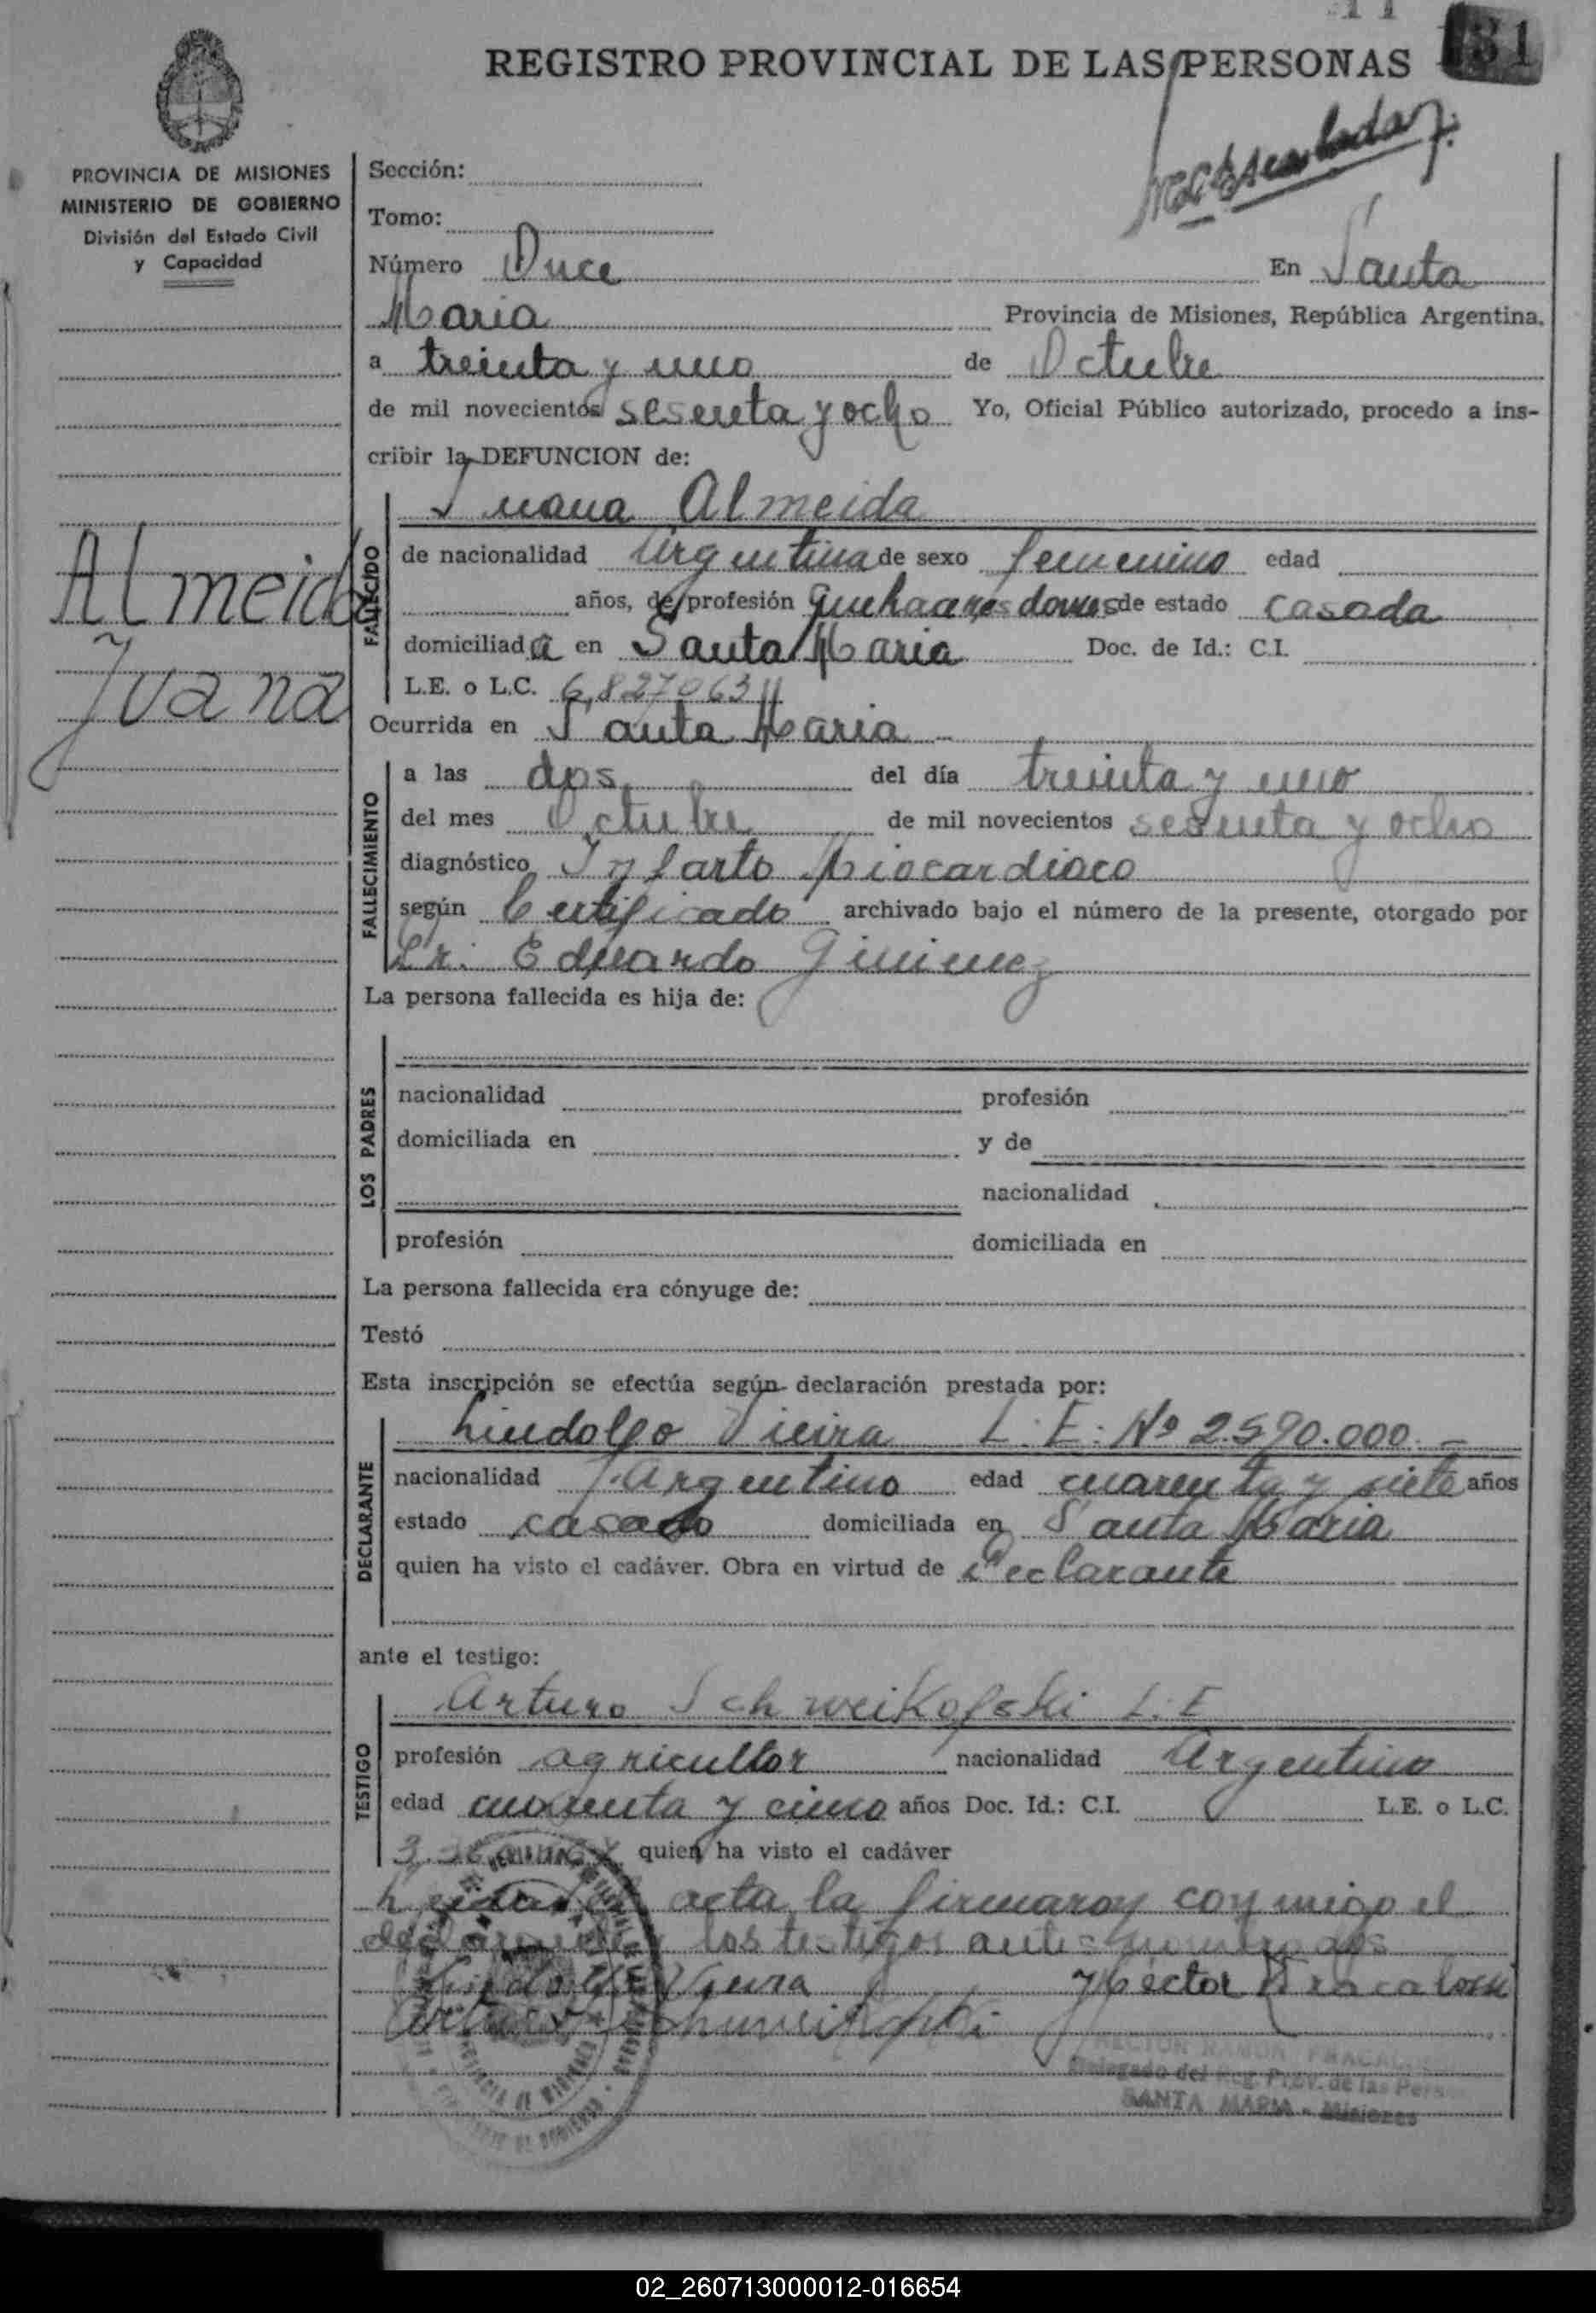 REGISTRO PROVINCIAL DE LAS PERSONAS
PROVINCIA DE MISIONES
MINISTERIO DE GOBIERNO
División del Estado Civil
y Capacidad
Sección:
Tomo:
Número Once En Santa
Maria Provincia de Misiones, República Argentina.
a treinta y uno de Octubre
de mil novecientos sesenta y ocho Yo, Oficial Público autorizado, procedo a ins-
cribir la DEFUNCION de:
Almeida
Juana
FALLECIDO
Juana Almeida
de nacionalidad Argentina de sexo femenino edad
años, de profesión de estado casada
domiciliada en Santa Maria Doc. de Id.: C.I.
L.E. o L.C. 6,827063
Ocurrida en Santa Maria
FALLECIMIENTO
a las dos del día treinta y uno
del mes Octubre de mil novecientos sesenta y ocho
diagnóstico Infarto Miocardiaco
según Certificado archivado bajo el número de la presente, otorgado por
Dr. Eduardo Gimenez
La persona fallecida es hija de:
LOS PADRES
nacionalidad profesión
domiciliada en y de
nacionalidad
profesión domiciliada en
La persona fallecida era cónyuge de:
Testó
Esta inscripción se efectúa según declaración prestada por:
DECLARANTE
Lindolfo Vieira L.E. Nº 2.590.000.-
nacionalidad Argentino edad cuarenta y siete años
estado casado domiciliada en Santa Maria
quien ha visto el cadáver. Obra en virtud de Declarante
ante el testigo:
TESTIGO
Arturo Schweikofski L.E
profesión agricultor nacionalidad Argentino
edad cuarenta y cinco años Doc. Id.: C.I. L.E. o L.C.
quien ha visto el cadáver
acta la firmaron conmigo el
los testigos
Vieira Hector
Arturo
HECTOR RAMON
Delegado del Reg. Prov. de las Pers
SANTA MARIA - Misiones
02_260713000012-016654